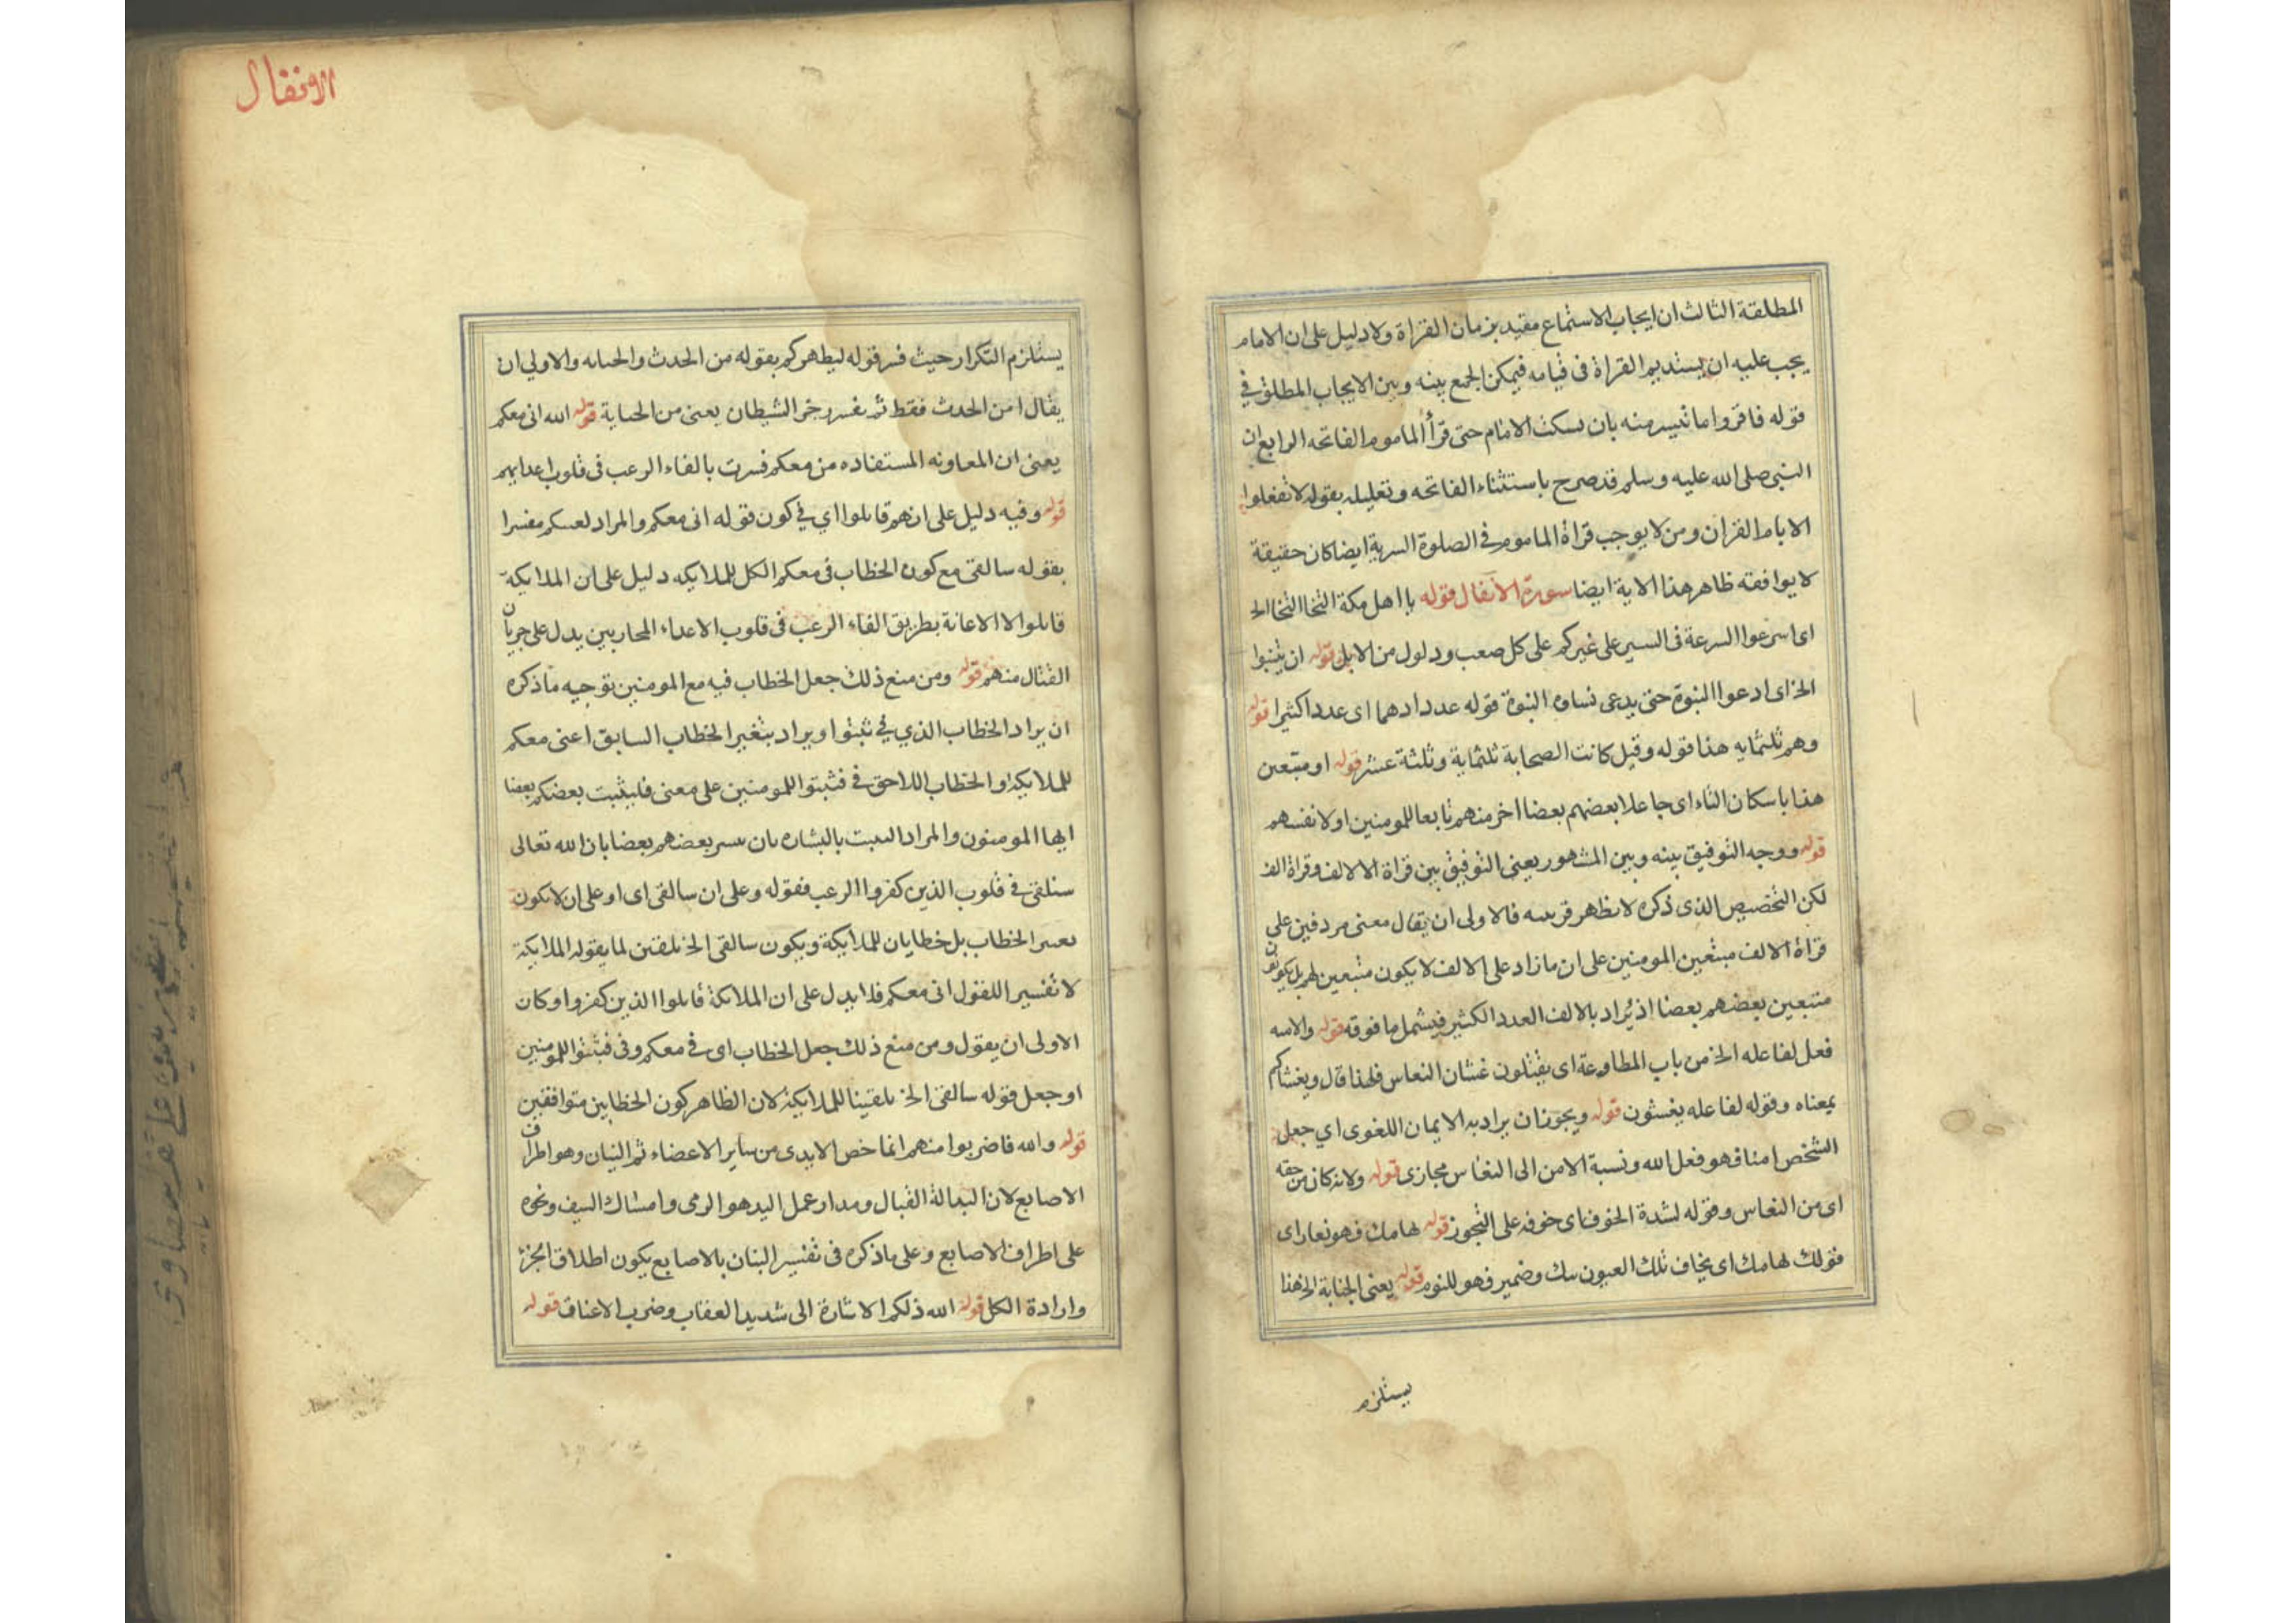 المطلقة الثالث ان ايجاب الاستماع مقيد بزمان القراة ولا دليل على ان الامام
يجب عليه ان يستديم القراة فى قيامه فيمكن الجمع بينه وبين الايجاب المطلق في
قوله فاقروا ما تيسر منه بان يسكت الامام حتى قرأ الماموم الفاتحه الرابع ان
النبى صلى الله عليه وسلم قد صرح باستثناء الفاتحه وتعليله بقوله لا تفعلوا
الا بام القران ومن لا يوجب قراة الماموم في الصلوة السرية ايضا كان حقيقة
لا يوافقه ظاهر هذا الاية ايضا سورة الانفال قوله يا اهل مكة النجا النجا الخ
اى اسرعوا السرعة فى السير على غيركم على كل صعب ودلول من الابل قوله ان يتنبوا
الخ اى ادعوا النبوة حتى يدعى نساوه النبوة قوله عدد ادهما اى عدد اكثيرا قوله
وهم ثلثمايه هذا قوله وقيل كانت الصحابة ثلثماية وثلثة عشر قوله او متبعين
هذا باسكان التاء اى جاعلا بعضهم بعضا اخر منهم تابعا للمومنين او لانفسهم
قوله ووجه التوفيق بينه وبين المشهور يعنى التوفيق بين قراة الالالف وقراة الف
لكن التخصيص الذى ذكره لا يظهر قرينه فالاولى ان يقال معنى مردفين على
قراة الالف متبعين المومنين على ان ما زاد على الالف لا يكون متبعين لهم بل يكونون
متبعين بعضهم بعضا اذ يراد بالالف العدد الكثير فيشمل ما فوقه قوله والامنه
فعل لفاعله الخ من باب المطاوعة اى يقبلون غشان النعاس فلهذا قال ويغشاكم
بمعناه وقوله لفاعله يغشون قوله ويجوز ان يراد به الايمان اللغوى اي جعل
الشخص امنا فهو فعل الله ونسبة الامن الى النعاس مجازى قوله ولانه كان من حقه
اى من النعاس وقوله لشدة الخوف اى خوفه على التجوز قوله لهامك فهو نعار اى
قولك لهامك اى يخاف تلك العيون منك وضمير فهو للنوم قوله يعنى الجنابة الخ هذا
يستلزم
الانفال
يستلزم التكرار حيث فسر قوله ليطهركم بقوله من الحدث والجنابه والاولي ان
يقال امن الحدث فقط ثم يفسر رجز الشيطان يعنى من الجنابة قوله الله انى معكم
يعنى ان المعاونه المستفاده من معكم فسرت بالقاء الرعب فى قلوب اعدايهم
قوله وفيه دليل على انهم قاتلوا اي في كون قوله انى معكم والمراد لعسكم مفسرا
بقوله سالقى مع كون الخطاب فى معكم الكل للملايكه دليل على ان الملايكة
قاتلوا الا الاعانة بطريق القاء الرعب فى قلوب الاعداء المحاربين يدل على جريان
القتال منهم قوله ومن منع ذلك جعل الخطاب فيه مع المومنين توجيه ما ذكره
ان يراد الخطاب الذي في ثبتوا ويراد بتغير الخطاب السابق اعنى معكم
للملايكه او الخطاب اللاحق في فثبتوا للمومنين على معنى فليثبت بعضكم بعضا
ايها المومنون والمراد التثبت بالبشاره بان يبسر بعضهم بعضا بان الله تعالى
سنلقى في قلوب الذين كفروا الرعب فقوله وعلى ان سالقى اى او على ان لا يكون
تفسير الخطاب بل خطابان للملايكة ويكون سالقى الخ تلقين لما يقوله الملايكة
لا تفسير اللقول انى معكم فلا يدل على ان الملائكة قاتلوا الذين كفروا وكان
الاولى ان يقول ومن منع ذلك جعل الخطاب اى في معكم وفى فثبتوا للمومنين
او جعل قوله سالقى الخ تلقينا للملايكة لان الظاهر كون الخطابين متوافقين
قوله والله فاضربوا منهم انما خص الايدى من ساير الاعضاء ثم البنان وهو اطراف
الاصابع لان اليد الة القتال ومدار عمل اليد هو الرمى وامساك السيف ونحوه
على اطراف الاصابع وعلى ما ذكره فى تفسير البنان بالاصابع يكون اطلاق الجزء
وارادة الكل قوله الله ذلكم الاشارة الى شديد العقاب وضرب الاعناق قوله